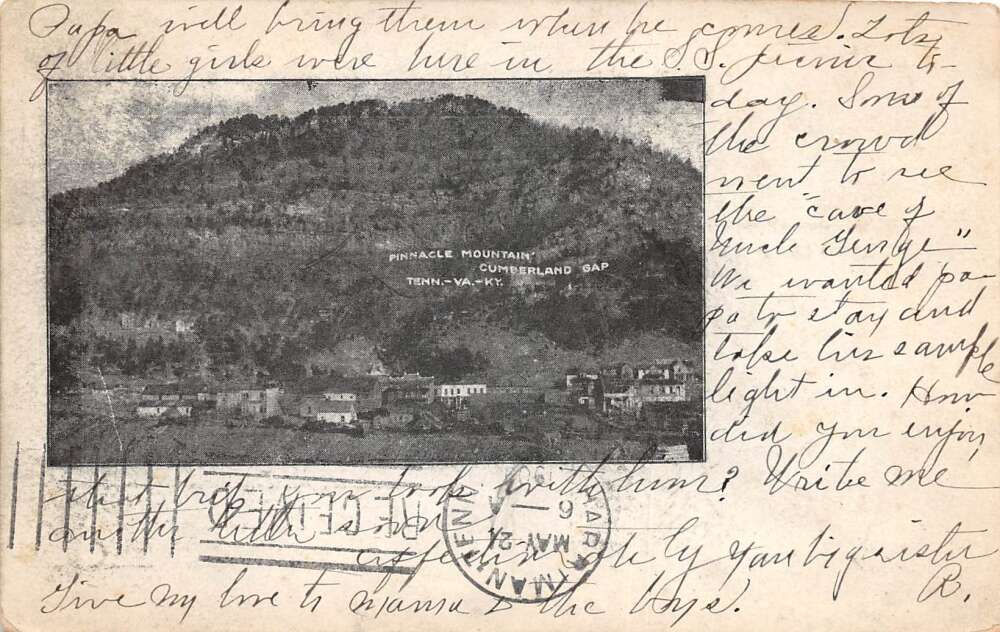 Papa will bring them when he comes. Lots
of little girls were here in the S.S. picnic to-
day. Some of
the crowd
went to see
the "cave of
Uncle George"
We wanted pa-
pa to stay and
take his sample
light in. How
did you enjoy
that trip you took with him? Write me
another letter soon
affectionately your big sister
R.
Give my love to mama & the boys.
PINNACLE MOUNTAIN
CUMBERLAND GAP
TENN.-VA.-KY.
RECEIVED
MANTENA
MAY 24
6